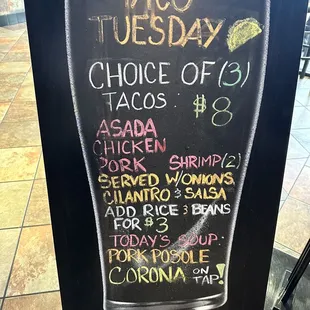 TACO
TUESDAY
CHOICE OF (3)
TACOS: $8
ASADA
CHICKEN
PORK SHRIMP (2)
SERVED W/ONIONS,
CILANTRO & SALSA
ADD RICE & BEANS
FOR $3
TODAY'S SOUP:
PORK POSOLE
CORONA ON TAP!